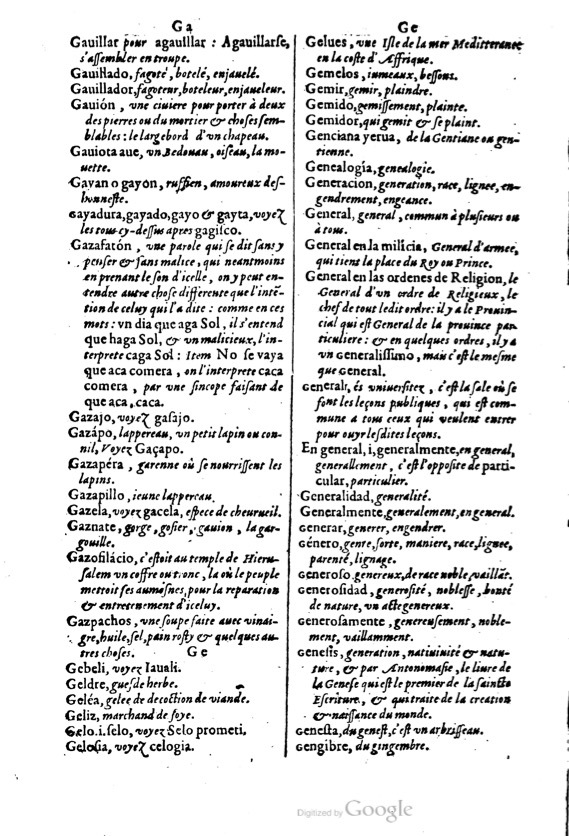 Ga
Gauillar pour agauillar : Agauillarse,
s'assembler en troupe.
Gauillado, fagoté, botelé, enjauelé.
Gauillador, fagoteur, boteleur, enjaueleur.
Gauión, vne ciuiere pour porter à deux
des pierres ou du mortier & choses sem-
blables : le large bord d'vn chapeau.
Gauiota aue, vn Bedouau, oiseau, la mo-
uette.
Gayan o gayón, ruffien, amoureux des-
honneste.
gayadura, gayado, gayo & gayta, voyez
les tous cy-dessus apres gagisco.
Gazafatón, vne parole qui se dit sans y
penser & sans malice, qui neantmoins
en prenant le son d'icelle, on y peut en-
tendre autre chose differente que l'intẽ-
tion de celuy qui l'a dite : comme en ces
mots : vn dia que aga Sol, il s'entend
que haga Sol, & vn malicieux, l'in-
terprete caga Sol : Item No se vaya
que aca comera, on l'interprete caca
comera, par vne sincope faisant de
que aca, caca.
Gazajo, voyez gasajo.
Gazápo, lappereau, vn petit lapin ou con-
nil, Voyez Gaçapo.
Gazapéra, garenne où se nourrissent les
lapins.
Gazapillo, ieune lappereau
Gazela, voyez gacela, espece de cheureuil.
Gaznate, gorge, gosier, gauion, la gar-
gouille.
Gazofilácio, c'estoit au temple de Hieru-
salem vn coffre ou tronc, la où le peuple
mettoit ses aumosnes, pour la reparation
& entretenement d'iceluy.
Gazpachos, vne soupe faite auec vinai-
gre, huile, sel, pain rosty & quelques au-
tres choses.
Ge
Gebeli, voyez Iauali.
Geldre, guesde herbe.
Geléa, gelee de decoction de viande.
Geliz, marchand de soye.
Gelo .i. selo, voyez Selo prometi.
Gelosia, voyez celogia.
Ge
Gelues, vne Isle de la mer Mediterranee
en la coste d'Affrique.
Gemelos, iumeaux, bessons.
Gemir, gemir, plaindre.
Gemido, gemissement, plainte.
Gemidor, qui gemit & se plaint.
Genciana yerua, de la Gentiane ou gen-
tienne.
Genealogía, genealogie.
Generacion, generation, race, lignee, en-
gendrement, engeance.
General, general, commun à plusieurs ou
à tous.
General en la milicia, General d'armee,
qui tient la place du Roy ou Prince.
General en las ordenes de Religion, le
General d'vn ordre de Religieux, le
chef de tout ledit ordre : il y a le Prouin-
cial qui est General de la prouince par-
ticuliere : & en quelques ordres, il y a
vn generalissimo, mais c'est le mesme
que General.
general, és vniuersitez, c'est la sale où se
font les leçons publiques, qui est com-
mune à tous ceux qui veulent entrer
pour ouyr lesdites leçons.
En general, i, generalmente, en general,
generallement, c'est l'opposite de parti-
cular, particulier.
Generalidad, generalité.
Generalmente, generalement, en general.
generar, generer, engendrer.
género, gente, sorte, maniere, race, lignee,
parenté, lignage.
generoso, genereux, de race noble, vaillãt.
Generosidad, generosité, noblesse, bonté
de nature, vn acte genereux.
generosamente, genereusement, noble-
ment, vaillamment.
genesis, generation, natiuinité & natu-
ture, & par Antonomasie, le liure de
la Genese qui est le premier de la saincte
Escriture, & qui traite de la creation
& naissance du monde.
genesta, du genest, c'est vn arbrisseau.
gengibre, du gingembre.
Digitized by Google